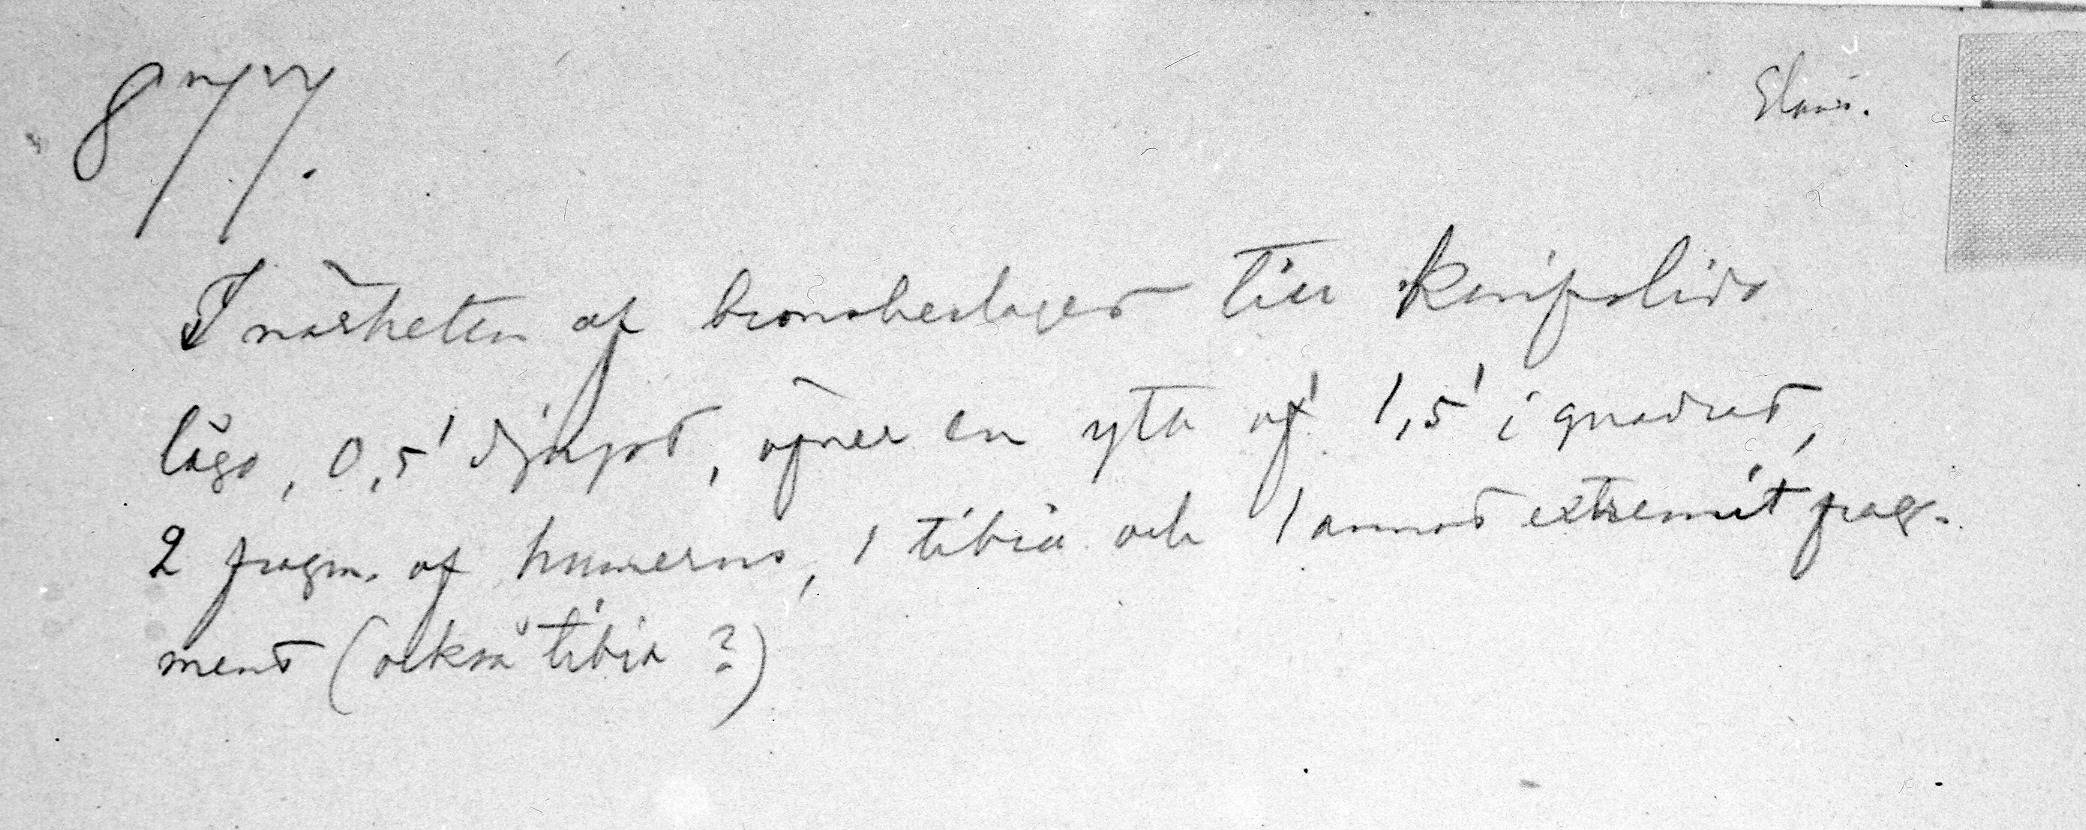 877.
I närheten af bronsbeslaget till knifslida
lågo, 0,5' djupt, öfver en yta af 1,5' i quadrat,
2 fragm. af humerus, 1 tibia och 1 annat extremitfrag-
ment (också tibia ?)